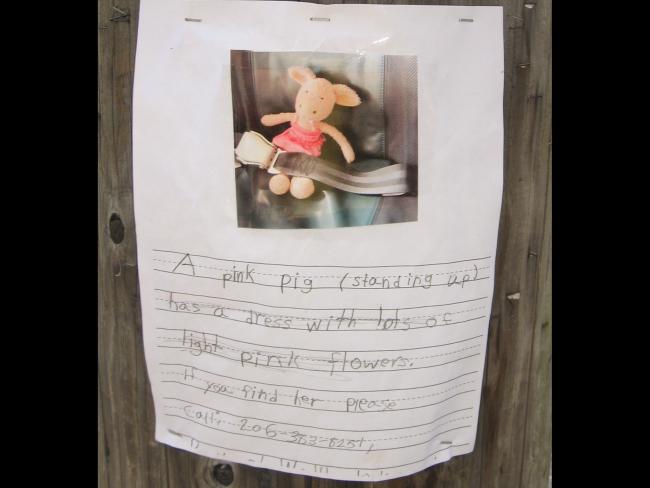 A pink pig (standing up)
has a dress with lots of
light pink flowers.
If you find her please
Call: 206-